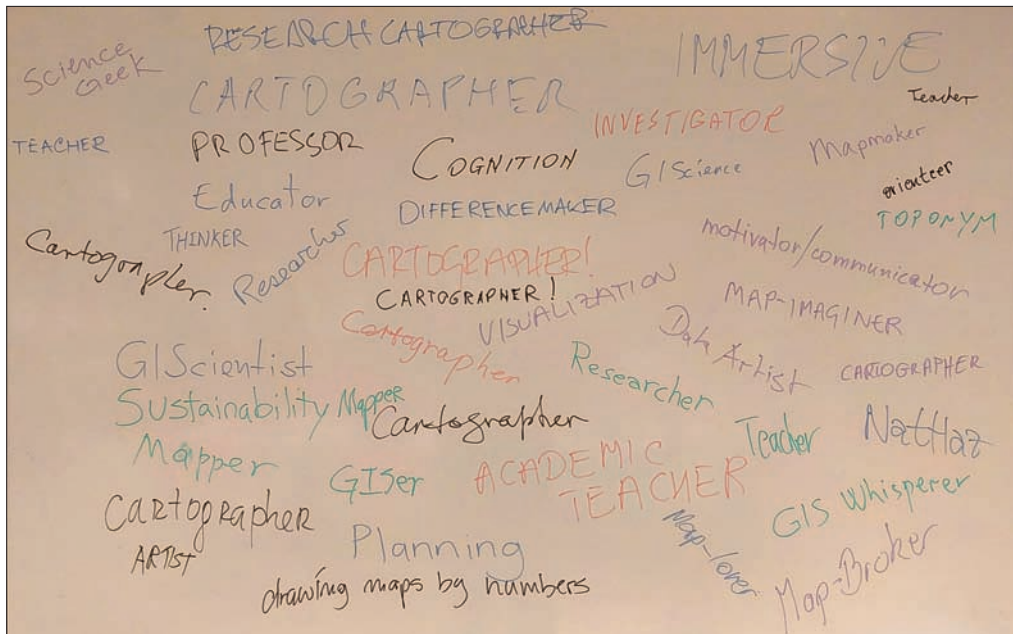 Science
Geek
RESEARCH CARTOGRAPHER
IMMERSIVE
CARTOGRAPHER
Teacher
INVESTIGATOR
TEACHER
PROFESSOR
COGNITION
GIScience
Mapmaker
orienteer
Educator
DIFFERENCEMAKER
TOPONYM
THINKER
Researcher
Cartogorapher.
CARTOGRAPHER!
motivator/communicator
CARTOGRAPHER!
VISUALIZATION
MAP-IMAGINER
Cartographer
Data Artist
GIScientist
Researcher
CARTOGRAPHER
Sustainability Mapper
Cartographer
Teacher
NatHaz
Mapper
GISer
ACADEMIC
TEACHER
GIS Whisperer
Cartographer
Map-lover
ARTIST
Planning
Map-Broker
drawing maps by numbers